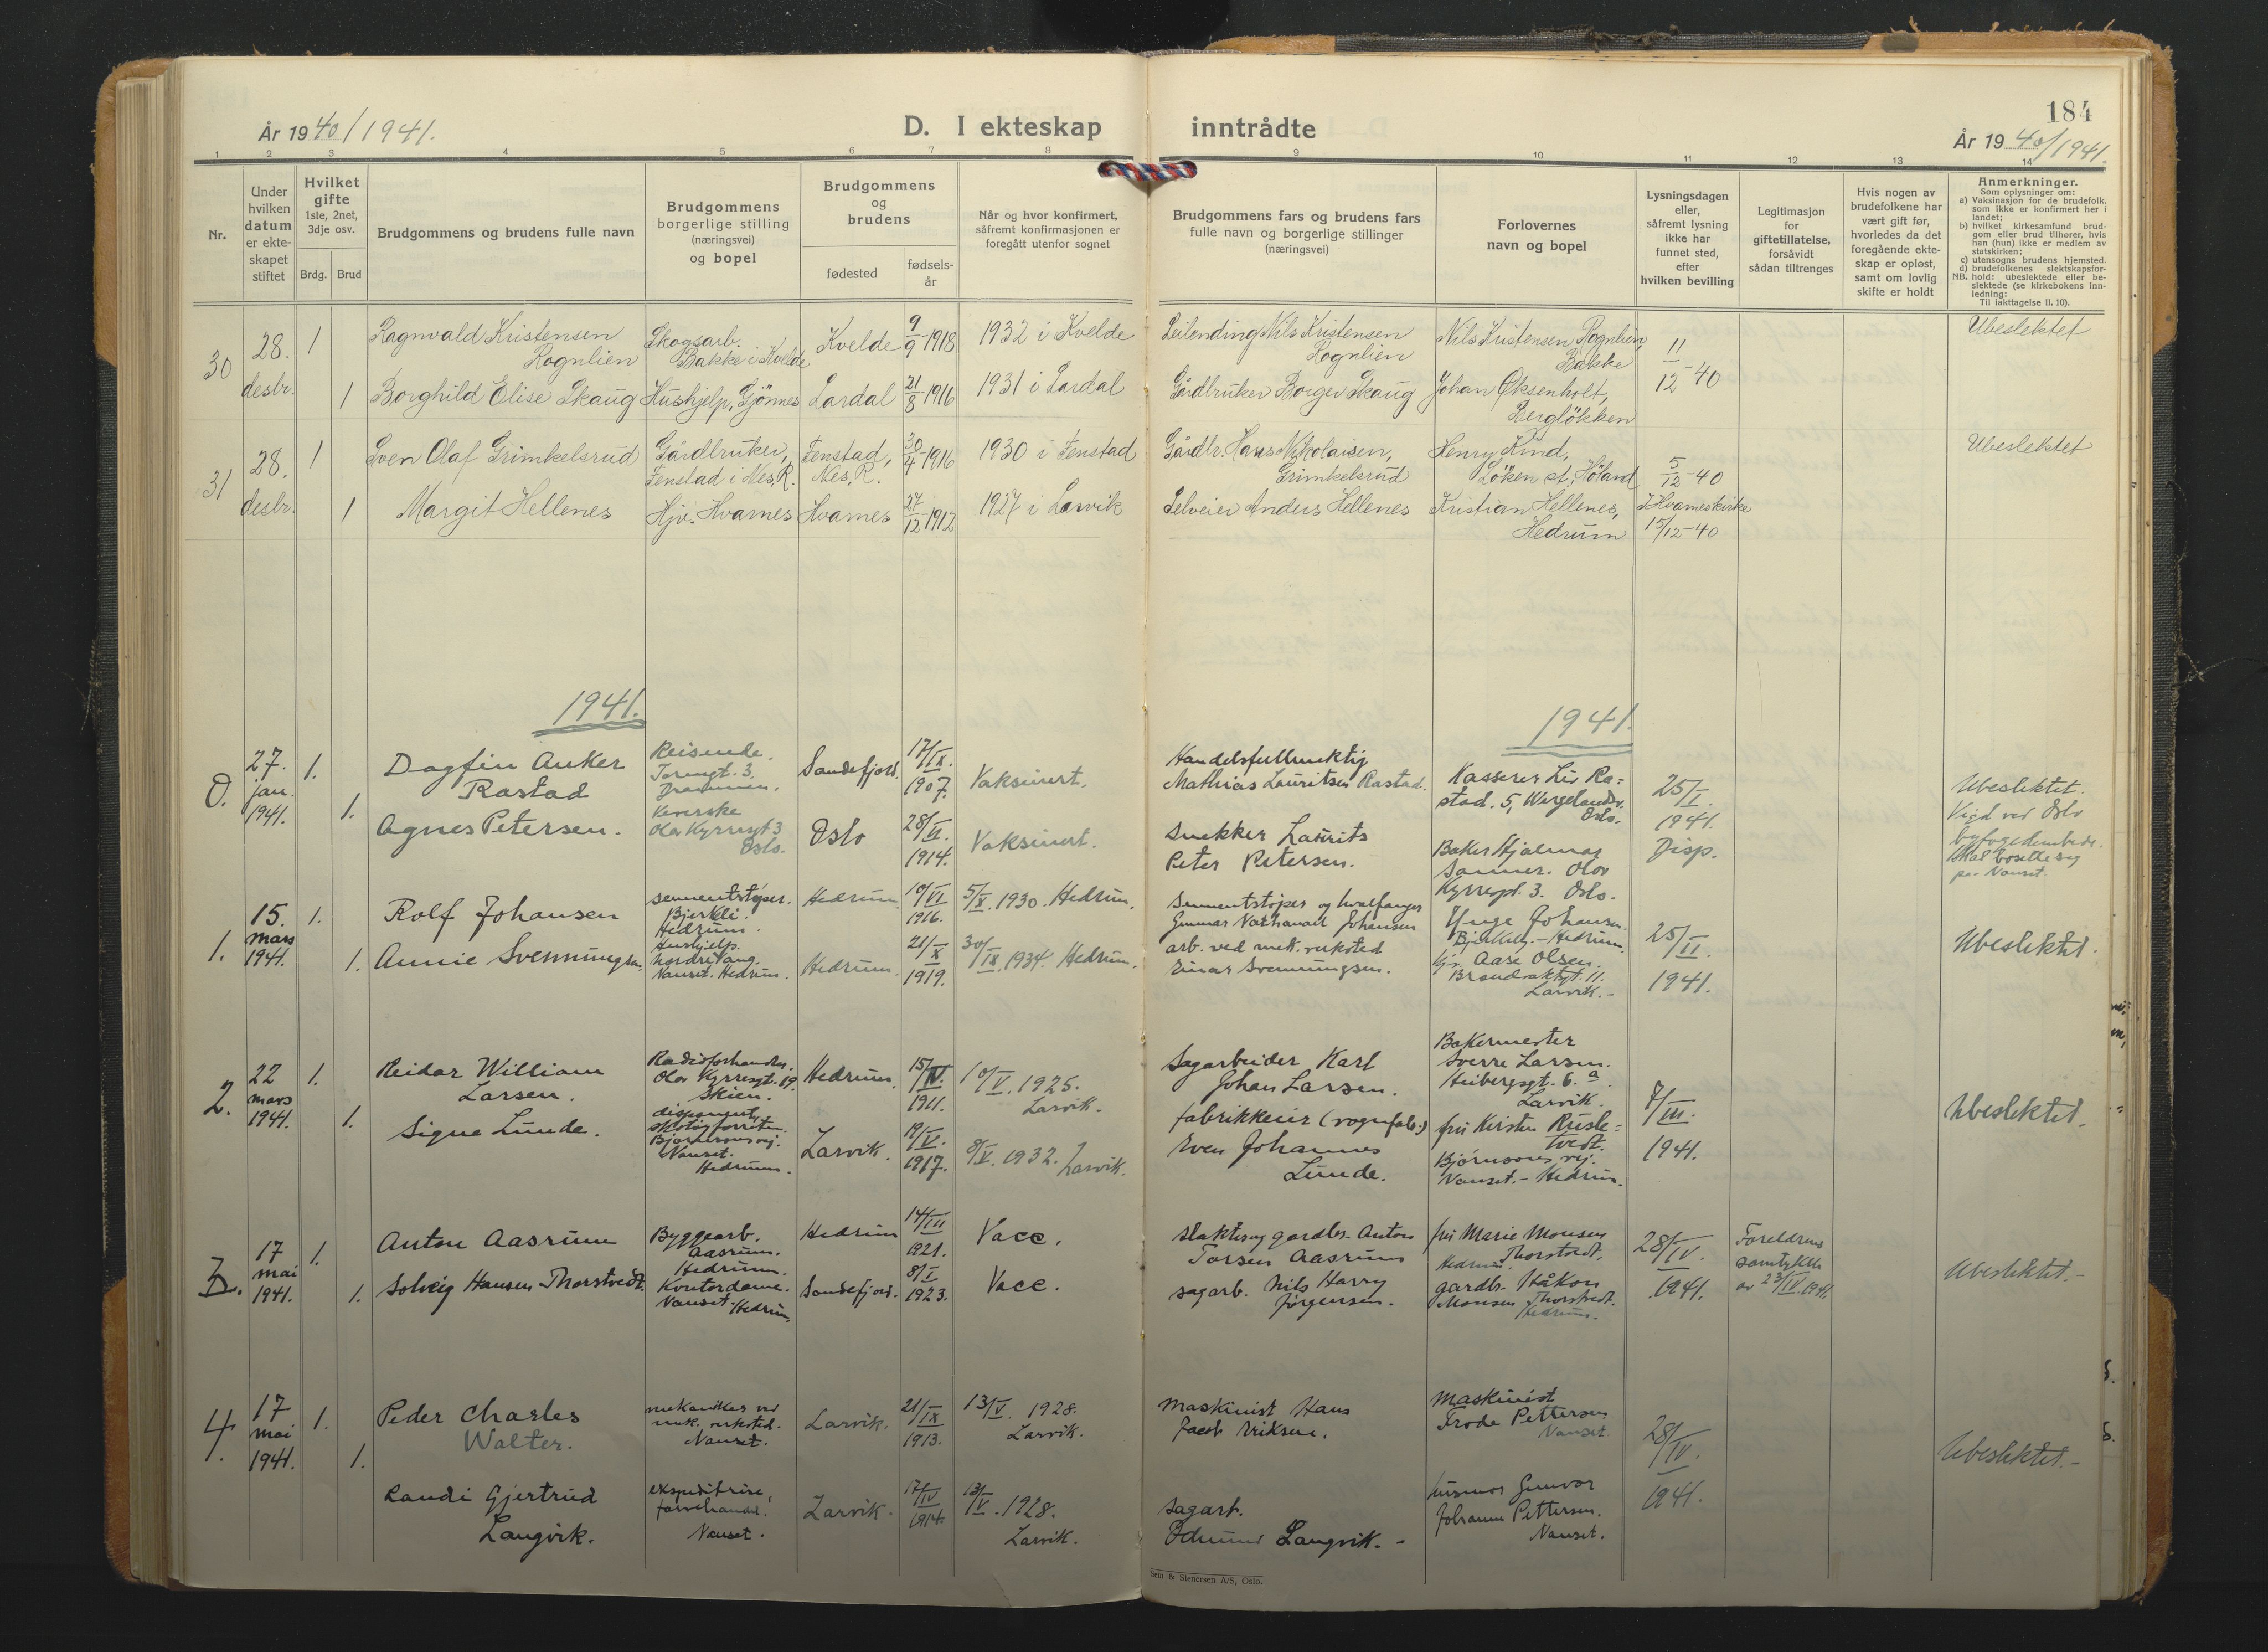 År 1940/1941.
D. I ekteskap
inntrådte
184
År 1940/1941.
1 2 3 4 5 6 7 8 9 10 11 12 13 14
Nr.
Under
hvilken
datum
er ekte-
skapet
stiftet
Hvilket
gifte
1ste, 2net,
3dje osv.
Brdg. Brud
Brudgommens og brudens fulle navn
Brudgommens
borgerlige stilling
(næringsvei)
og bopel
Brudgommens
og
brudens
fødested
fødsels-
år
Når og hvor konfirmert,
såfremt konfirmasjonen er
foregått utenfor sognet
Brudgommens fars og brudens fars
fulle navn og borgerlige stillinger
(næringsvei)
Forlovernes
navn og bopel
Lysningsdagen
eller,
såfremt lysning
ikke har
funnet sted,
efter
hvilken bevilling
Legitimasjon
for
giftetillatelse,
forsåvidt
sådan tiltrenges
Hvis nogen av
brudefolkene har
vært gift før,
hvorledes da det
foregående ekte-
skap er opløst,
samt om lovlig
skifte er holdt
Anmerkninger.
Som oplysninger om:
a) Vaksinasjon for de brudefolk.
som ikke er konfirmert her i
landet;
b) hvilket kirkesamfund brud-
gom eller brud tilhører, hvis
han (hun) ikke er medlem av
statskirken;
c) utensogns brudens hjemsted.
d) brudefolkenes slektskapsfor-
NB. hold: ubeslektede eller be-
slektede (se kirkebokens inn-
ledning:
Til iakttagelse II. 10).
30
28.
desbr.
1
Ragnvald Kristensen
Rognlien
Skogsarb.
Bakke i Kvelde
Kvelde
9/9-1918
1932 i Kvelde
Leilending Nils Kristensen
Rognlien
Nils Kristensen Rognlien
Bakke
11/12-40
Ubeslektet
1
Borghild Elise Skaug
Hushjelp, Gjönnes
Lardal
21/8-1916
1931 i Lardal
Gårdbruker Borger Skaug
Johan Øksenholt,
Berglökken
31
28.
desbr.
1
Sven Olaf Grimkelsrud
Gårdbruker,
Fenstad i Nes, R.
Fenstad,
Nes, R.
30/4-1916
1930 i Fenstad
Gårdbr. Hans Nikolaisen,
Grimkelsrud
Henry Kind,
Löken st, Höland
5/12-40
Ubeslektet
1
Margit Hellenes
Hjv. Hvarnes
Hvarnes
27/12-1912
1927 i Larvik
Selveier Anders Hellenes
Kristian Hellenes,
Hedrum
I Hvarneskirke
15/12-40
1941.
1941.
0.
27.
jan.
1941.
1.
Dagfin Anker
Rastad
Reisende.
Torengt. 3.
Drammen.
Sandefjord.
17/IX.
1907.
Vaksinert.
Handelsfullmektig
Mathias Lauritsen Rastad.
Kasserer Liv Ra=
stad. 5, Wergelandsv.
Oslo.
25/I.
1941.
Disp.
Ubeslektet.
Vigd ved Oslo
byfogedembede.
Skal bosette sig
på Nanset.
1.
Agnes Petersen.
Olav Kyrresgt 3
Oslo.
Oslo
28/VI.
1914.
Vaksinert.
Snekker Laurits
Peter Petersen.
Baker Hjalmar
Sanner. Olav
Kyrresgt. 3. Oslo.
1.
15.
mars
1941.
1.
Rolf Johansen
sementstøper.
Bjerkli.
Hedrum.
Hedrum
10/VI
1916.
5/X. 1930. Hedrum.
Sementstøper og hvalfanger
Gunnar Nathanael Johansen
Yngve Johansen.
Bjerkely. - Hedrum
25/II.
1941.
Ubeslektet.
1.
Annie Svenningsen.
Hushjelp.
Nordre Vang.
Nanset. Hedrum.
Hedrum.
21/X
1919.
30/IX. 1934. Hedrum.
arb. ved mek. verksted
Einar Svenningsen.
fr. Aase Olsen.
Brandvaktgt. 11.
Larvik. -
2.
22
mars
1941.
1.
Reidar William
Larsen.
Radioforhandler.
Olav Kyrresgt. 19.
Skien.
Hedrum.
15/IV.
1911.
10/V. 1925.
Larvik.
Sagarbeider Karl
Johan Larsen.
Bakermester
Sverre Larsen.
Heibergsgt. 6. a
Larvik.
7/III.
1941.
Ubeslektet.
1.
Signe Lunde.
disponent,
skotøyforretn.
Bjørnsonsvej.
Nanset.
Hedrum.
Larvik.
19/V.
1917.
8/V. 1932. Larvik.
fabrikkeier (vognfab.)
Even Johannes
Lunde.
fru Kirsten Rusle=
tvedt.
Bjørnsons vej.
Nanset. - Hedrum.
3.
17
mai
1941.
1.
Anton Aasrum
Byggearb.
Aasrum.
Hedrum.
Hedrum
14/III
1921.
Vacc.
Slakter og gardbr. Anton
Torsen Aasrum
fru Marie Monsen
Thorstvedt.
Hedrum.
28/IV.
1941.
Foreldrenes
samtykke
av 23/IV. 1941.
Ubeslektet. -
1.
Solveig Hansen Thorstvedt.
Kontordame.
Nanset. Hedrum.
Sandefjord.
8/I
1923.
Vacc.
sagarb. Nils Harry
Jørgensen.
gardbr. Håkon
Monsen Thorstvedt.
Hedrum.
4.
17
mai
1941.
1.
Peder Charles
Walter.
mekaniker ved
mek. verksted.
Nanset.
Larvik.
21/IX
1913.
13/V. 1928.
Larvik.
Maskinist Hans
Jacob Eriksen.
Maskinist
Frode Pettersen
Nanset.
28/IV.
1941.
Ubeslektet. -
1.
Randi Gjertrud
Langvik.
ekspeditrise,
farvehandel.
Nanset.
Larvik.
17/IV
1914.
13/V. 1928.
Larvik.
sagarb.
Edmund Langvik. -
husmor Gunvor
Johanne Pettersen.
Nanset.
Sem & Stenersen A/S, Oslo.